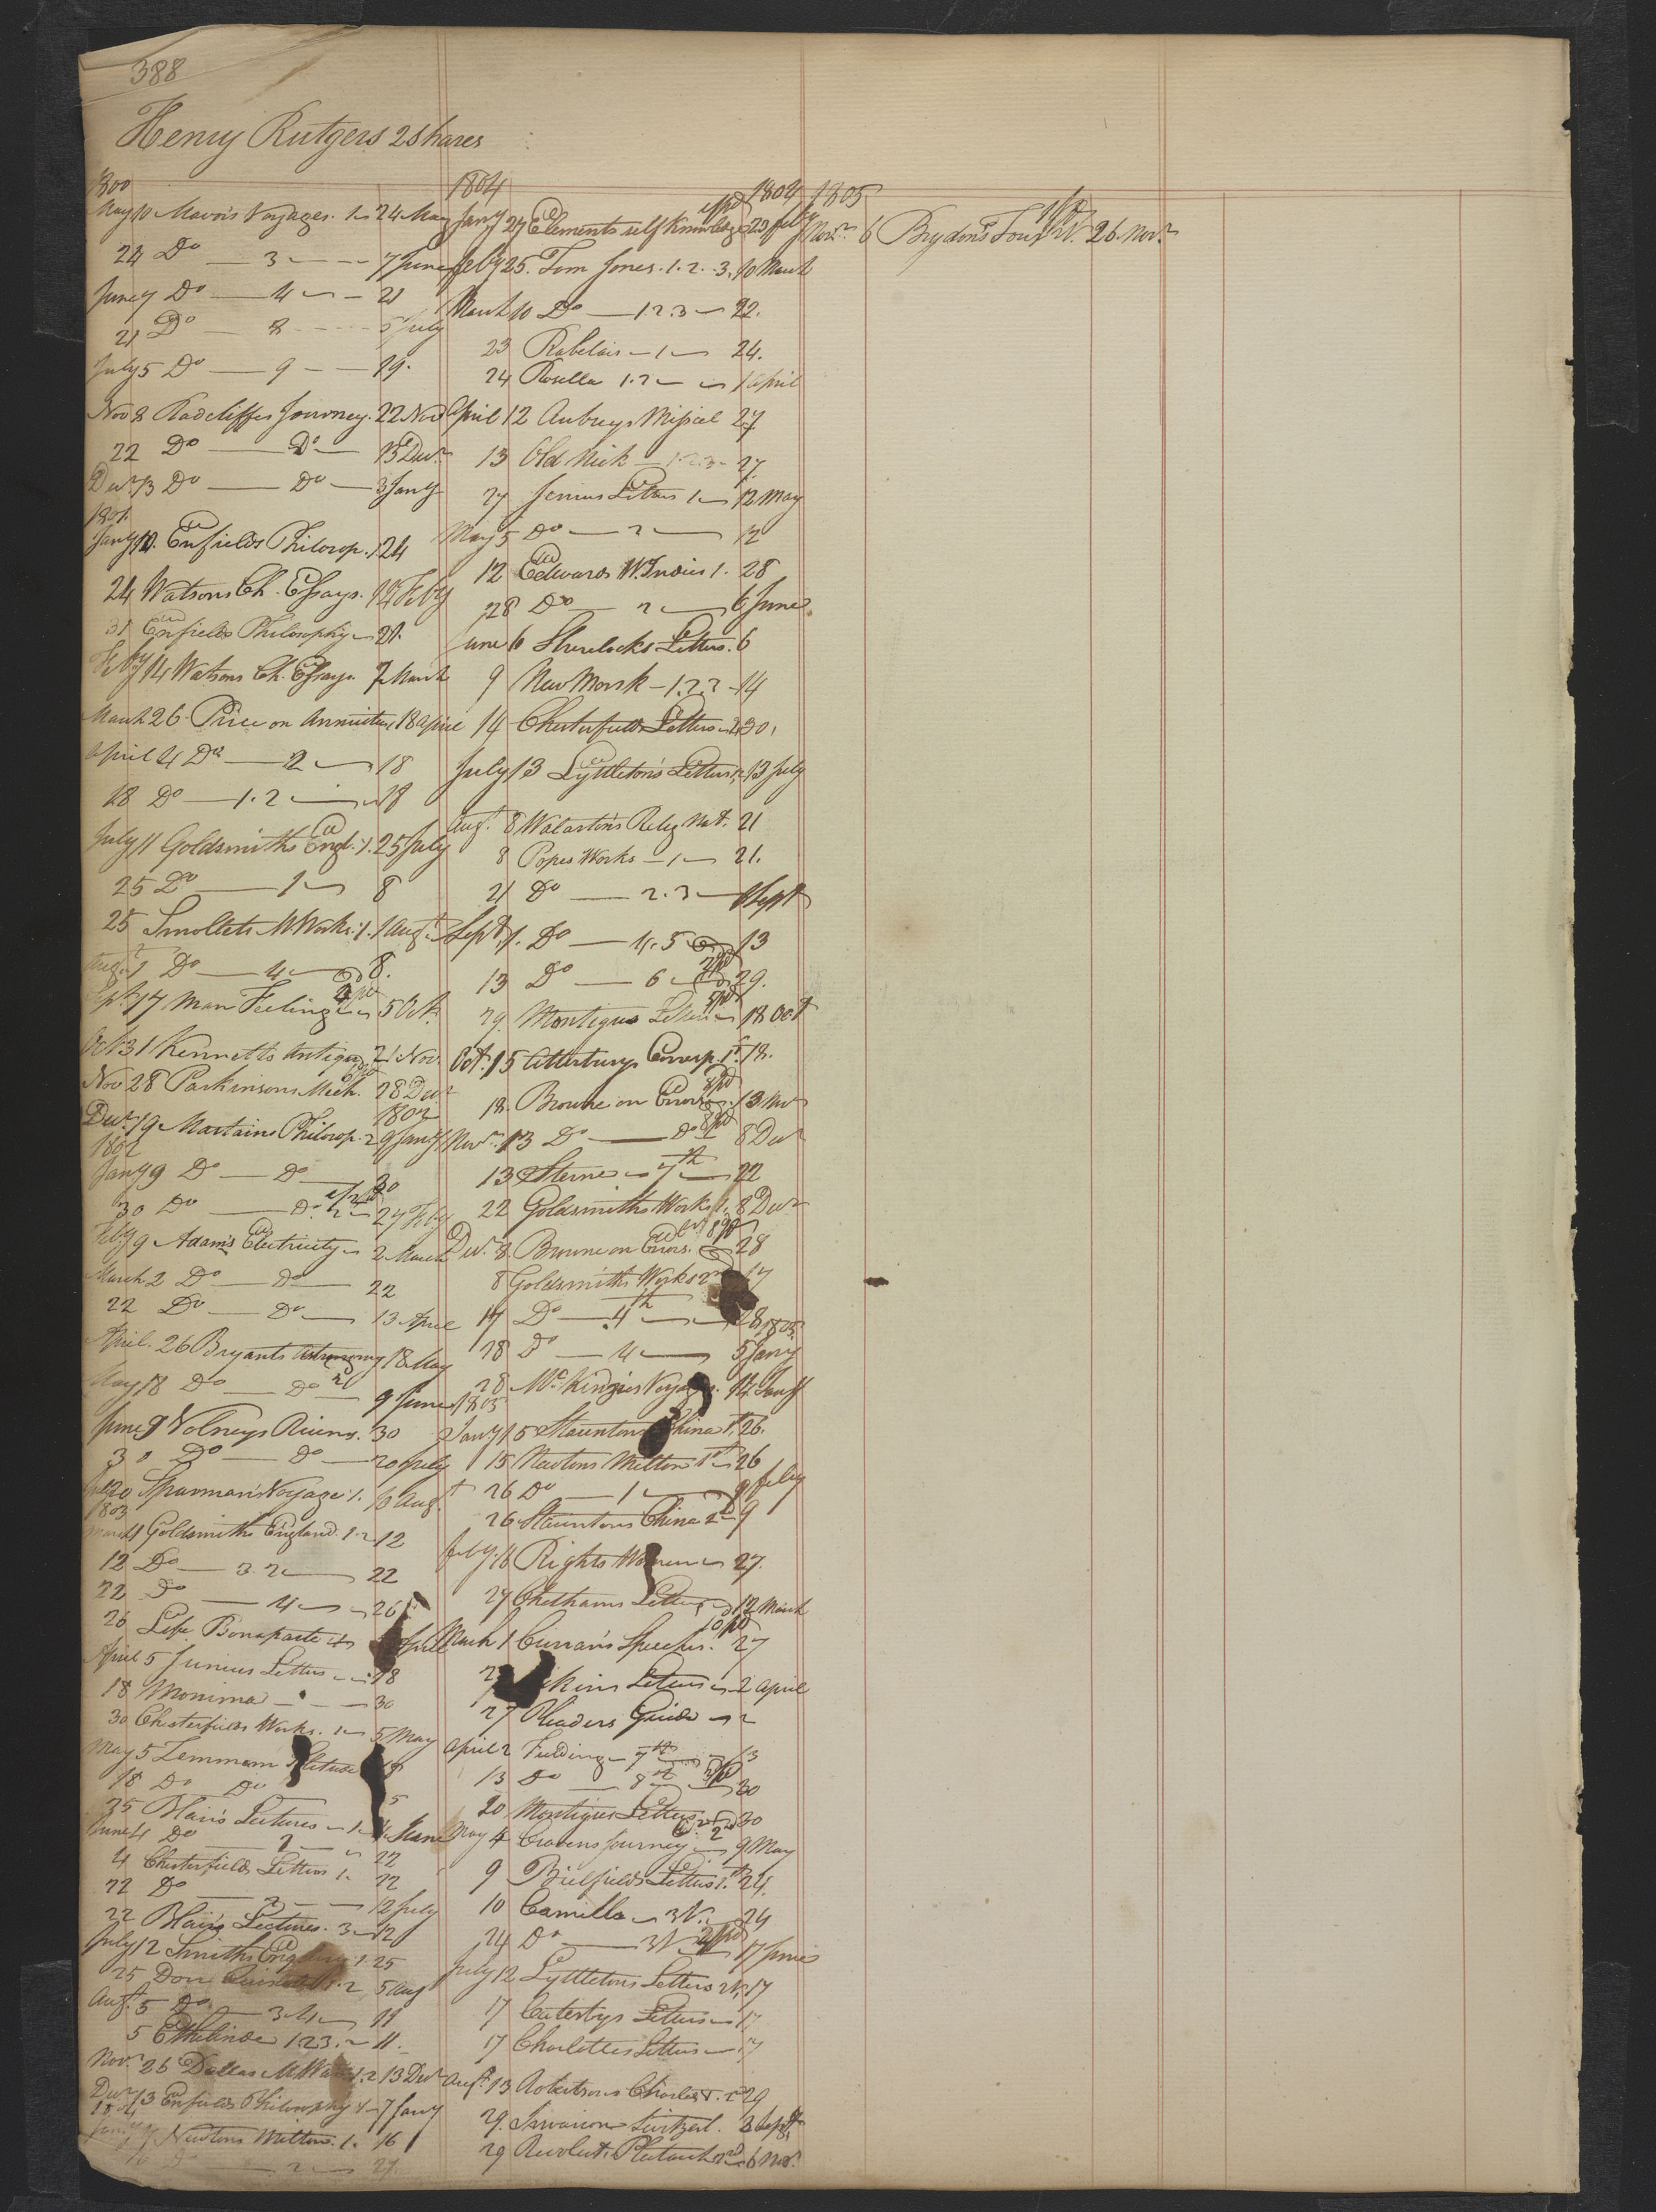 388
Henry Rutgers 2 shares
1800
May 10 Mavor's Voyages. 1 24 May
24 Do — 3 — 7 June
June 7 Do — 4 — 21
21 Do — 8 — 5 July
July 5 Do — 9 — 19.
Nov 8 Radcliffes Journey. 22 Nov
22 Do — Do — 13 Decr
Decr 13 Do — Do — 3 Jany
1801.
Jany 10. Enfields Philosop. 1 24
24 Watsons Ch. Essays. 14 Feby
31 Enfields Philosophy 21.
Feby 14 Watsons Ch. Essays 7 March
March 26 Price on Annuities 18 April
April 4 Do — 2 — 18
18 Do — 1.2 — 18
July 11 Goldsmiths Engl. 1. 25 July
25 Do — 1 8
25 Smolletts M Works. 1. 1 Augt
Augt 1 Do — 4 — 8.
Sept 17 Man Feeling 5 Oct.
Oct 31 Kennetts Antiqu. 21 Nov.
Nov 28 Parkinsons Mech. 28 Decr
1802
Decr 19 Martains Philosop. 2 9 Jany
1802
Jany 9 Do — Do — 30
30 Do — Do. 2 27 Feby
Feby 9 Adams Electricity 2 March
March 2 Do — Do — 22
22 Do — Do — 13 April
April. 26 Bryants Astronomy 18 May
May 18 Do — Do — 9 June
June 9 Volneys Ruins. 30
30 Do — Do — 20 July
July 20 Sparman's Voyage. 1. 10 Augt
1803
March 4 Goldsmiths England. 1.2 12
12 Do — 3.2 — 22
22 Do — 4 — 26
26 Life Bonaparte April
April 5 Junius Letters — 18
18 Monima — 30
30 Chesterfields Works. 1 5 May
May 5 Zemmerm Solitude 18
18 Do Do 5
25 Blair's Lectures — 1. 4 June
June 4 Do — 2 — 22
4 Chesterfields Letters 1. 22
22 Do — 2 — 12 July
22 Blairs Lectures. 3 — 12
July 12 Smiths 1. 25
25 Don Quixote 1.2 5 Aug
Augt. 5 Do — 3.4 — 11
5 Ethelinde 1.2.3. 11.
Novr 26 Dallas M Works 1.2 13 Decr
Decr 13 Enfields Philosophy 1 7 Jany
1804
Jany 7 Newtons Milton. 1. 16
16 Do — 2 — 27.
1804 1804
Jany 27 Elements self Knowledge 25 Feby
Feby 25. Tom Jones. 1.2.3. 10 March
March 10 Do — 1.2.3 — 22.
23 Rabelais — 1 — 24.
24 Rosella 1.2 — 1 April
April 12 Aubreys Miscel 27
13 Old Nick — 1.2.3 — 27.
27 Junius Letters 1 — 12 May
May 5 Do — 2 — 12
12 Edwards W. Indies 1. 28
28 Do — 2 — 6 June
June 6 Sherlocks Letters. 6
9 New Monk — 1.2.3 — 14
14 Chesterfields Letters 30.
July 13 Lyttleton's Letters 13 July
Augt. 8 Walastons Relig Nat. 21
8 Popes Works — 1 — 21.
21 Do — 2.3 — 1 Sept
Sept. 1. Do — 4.5 13
13 Do — 6 — 29.
29. Montigue Letters 18 Oct
Oct. 15 Atterburys Corresp. 1st 18.
18. Browne on Errors 13 Nov
Novr. 13 Do — Do 8 Decr
13 Sterne — 7th — 22
22 Goldsmiths Works 1. 8 Decr
Decr. 8. Browne on Errors. 28
8 Goldsmiths Works 2nd 17
17 Do — 4th — 28
1805
18 Do — 4 — 5 Jany
28 McKinzies Voyages. 14 Jany
1805
Jany 15 Stauntons China 1st. 26.
15 Newtons Milton 1st 26
26 Do — 1 — 9 Feby
26 Stauntons China 2d 9
Feby. 16 Rights Women 27.
27 Chathams Letters 12 March
March 1 Curran's Speeches. 27
Letters 2 April
27 Pleaders Guide 2
April 2 Fielding — 7th — 13
13 Do — 8th 30
20 Montigues Letters 30
May 4 Cravens Journey 9 May
9 Bielfields Letters 1st 24.
10 Camilla — 3 V. 24
24 Do — 3 V 17 June
July 12 Lyttletons Letters 2 V. 17
17 Letters 17
17 Charlottes Letters — 17
Augt. 13 Robertsons Charles V. 1st 29
29. Switzerl. 3 Sept.
29 Revolut. Plutarch 2nd 6 Nov.
1805
Novr. 6 Brydon's Tour V. 26. Novr